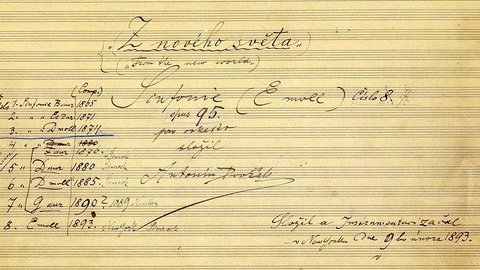 „Z nového světa"
("From the new world")
Sinfonie (E moll) Číslo 8.
opus 95.
pro orkestr
složil
Antonín Dvořák
(Comp.)
1. Sinfonie B dur 1865
2. " " Es dur 1871
3. " " D moll 1874.
4 F dur 1870.
5 D dur 1880 Simrock
6 D moll 1885. Simrock
7 G dur 1890 1889 Novello
8. E moll 1893. New York Simrock
Složil a Instrumentovat začal
v New Yorku Dne 9ho února 1893.